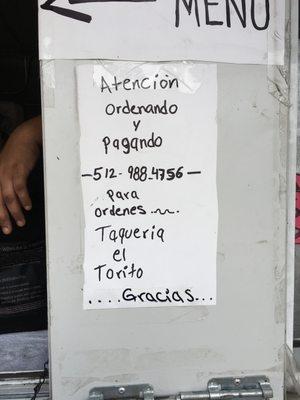 MENU
Atención
ordenando
y
Pagando
-512-988-4756-
para
ordenes....
Taqueria
el
Torito
....Gracias...